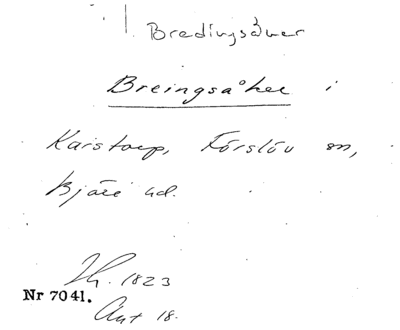 Bredingsåker
Breingsåker i
Karstorp, Förslöv sn,
Bjäre hd.
Jh. 1823
Nr 7041.
Akt 18.